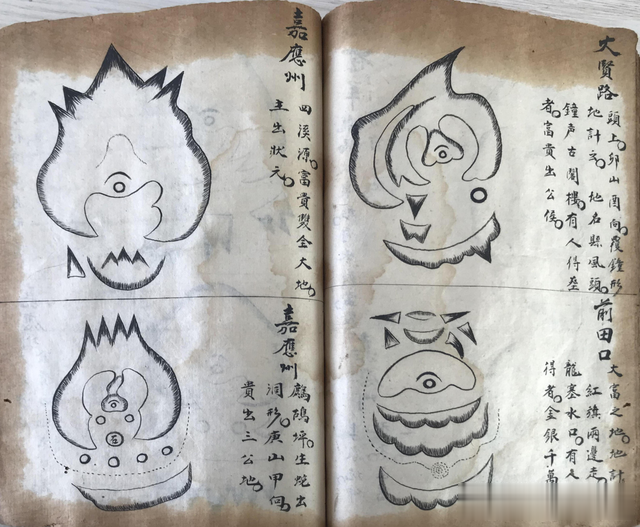 大賢路
頭上。卯山酉向。覆鐘形
地計。地名縣風頭。
鐘声古閣樓。有人得葬
者。富貴出公侯。
前田口
大富之地。地計
紅旗兩邊走
龍塞水口。有人
得者。金銀千萬
嘉應州
四溪源。富貴雙全大地。
主出狀元。
嘉應州
鷓鴣坪生蛇出
洞形。庚山甲向。
貴出三公地。